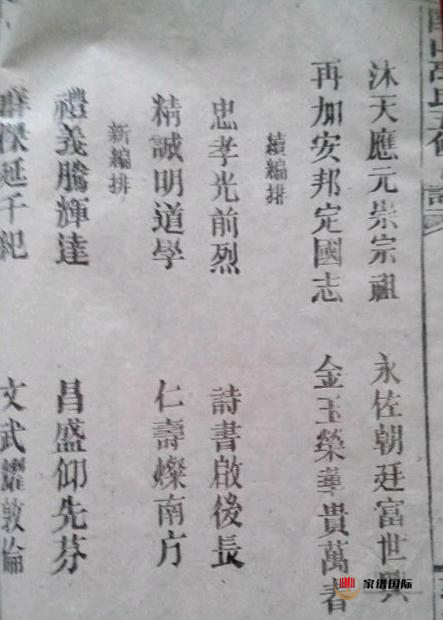 沐天應元崇宗祖　永佐朝廷富世興
再加安邦定國志　金玉榮華貴萬者
續編排
忠孝光前烈　詩書啟後長
精誠明道學　仁壽燦南方
新編排
禮義騰輝達　昌盛仰先芬
群傑延千紀　文武耀敦倫
家谱国际